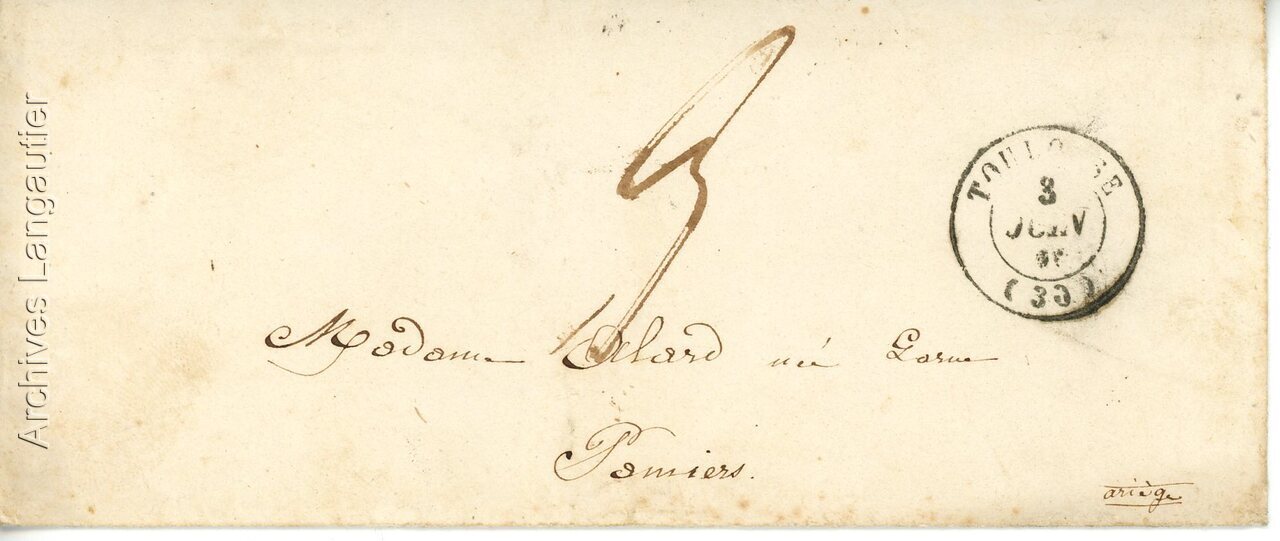 Archives Langautier
3
TOULOUSE
3
JUIN
(30)
Madame Alard née
Pamiers.
ariège